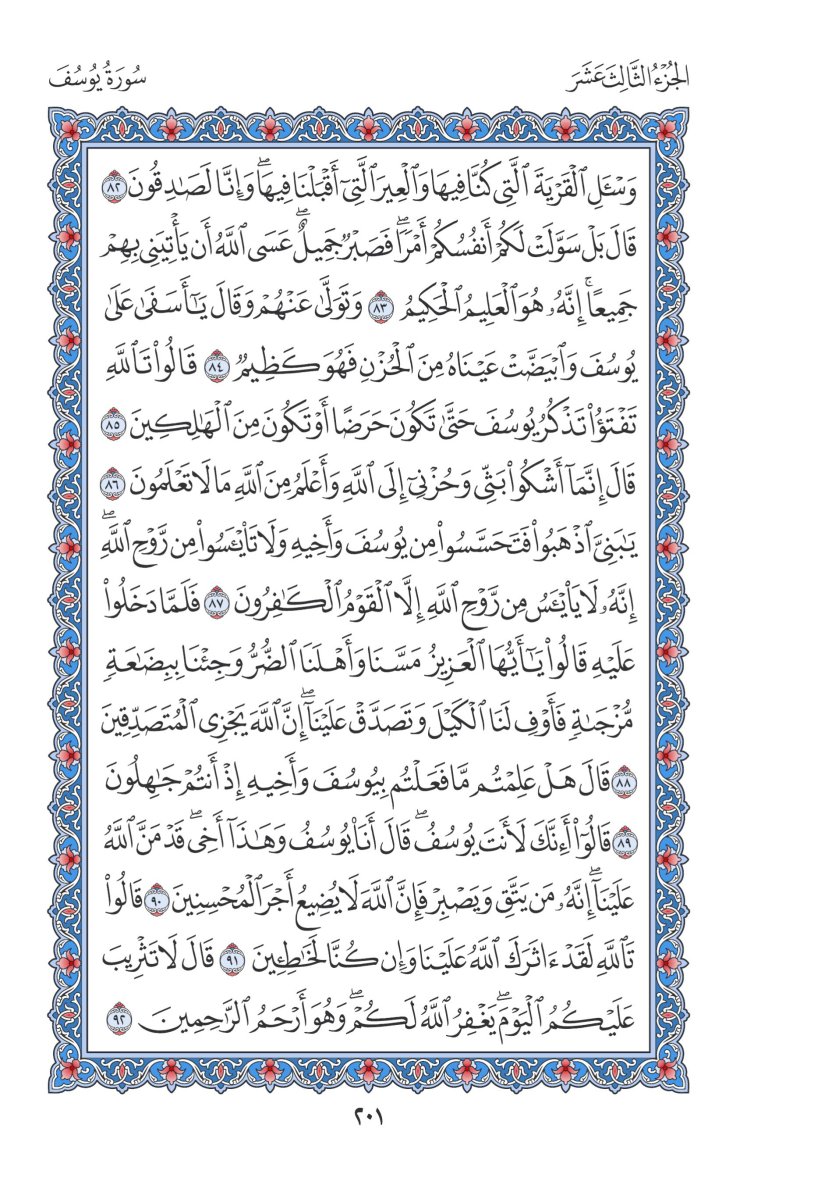 الجُزْءُ الثَّالِثَ عَشَرَ
سُورَةُ يُوسُفَ
وَسْـَٔلِ ٱلْقَرْيَةَ ٱلَّتِى كُنَّا فِيهَا وَٱلْعِيرَ ٱلَّتِىٓ أَقْبَلْنَا فِيهَاۖ وَإِنَّا لَصَـٰدِقُونَ ٨٢
قَالَ بَلْ سَوَّلَتْ لَكُمْ أَنفُسُكُمْ أَمْرًاۖ فَصَبْرٌ جَمِيلٌۖ عَسَى ٱللَّهُ أَن يَأْتِيَنِى بِهِمْ
جَمِيعًاۚ إِنَّهُۥ هُوَ ٱلْعَلِيمُ ٱلْحَكِيمُ ٨٣ وَتَوَلَّىٰ عَنْهُمْ وَقَالَ يَـٰٓأَسَفَىٰ عَلَىٰ
يُوسُفَ وَٱبْيَضَّتْ عَيْنَاهُ مِنَ ٱلْحُزْنِ فَهُوَ كَظِيمٌ ٨٤ قَالُوا۟ تَٱللَّهِ
تَفْتَؤُا۟ تَذْكُرُ يُوسُفَ حَتَّىٰ تَكُونَ حَرَضًا أَوْ تَكُونَ مِنَ ٱلْهَـٰلِكِينَ ٨٥
قَالَ إِنَّمَآ أَشْكُوا۟ بَثِّى وَحُزْنِىٓ إِلَى ٱللَّهِ وَأَعْلَمُ مِنَ ٱللَّهِ مَا لَا تَعْلَمُونَ ٨٦
يَـٰبَنِىَّ ٱذْهَبُوا۟ فَتَحَسَّسُوا۟ مِن يُوسُفَ وَأَخِيهِ وَلَا تَا۟يْـَٔسُوا۟ مِن رَّوْحِ ٱللَّهِۖ
إِنَّهُۥ لَا يَا۟يْـَٔسُ مِن رَّوْحِ ٱللَّهِ إِلَّا ٱلْقَوْمُ ٱلْكَـٰفِرُونَ ٨٧ فَلَمَّا دَخَلُوا۟
عَلَيْهِ قَالُوا۟ يَـٰٓأَيُّهَا ٱلْعَزِيزُ مَسَّنَا وَأَهْلَنَا ٱلضُّرُّ وَجِئْنَا بِبِضَـٰعَةٍ
مُّزْجَىٰةٍ فَأَوْفِ لَنَا ٱلْكَيْلَ وَتَصَدَّقْ عَلَيْنَآۖ إِنَّ ٱللَّهَ يَجْزِى ٱلْمُتَصَدِّقِينَ
٨٨ قَالَ هَلْ عَلِمْتُم مَّا فَعَلْتُم بِيُوسُفَ وَأَخِيهِ إِذْ أَنتُمْ جَـٰهِلُونَ
٨٩ قَالُوٓا۟ أَءِنَّكَ لَأَنتَ يُوسُفُۖ قَالَ أَنَا۠ يُوسُفُ وَهَـٰذَآ أَخِىۖ قَدْ مَنَّ ٱللَّهُ
عَلَيْنَآۖ إِنَّهُۥ مَن يَتَّقِ وَيَصْبِرْ فَإِنَّ ٱللَّهَ لَا يُضِيعُ أَجْرَ ٱلْمُحْسِنِينَ ٩٠ قَالُوا۟
تَٱللَّهِ لَقَدْ ءَاثَرَكَ ٱللَّهُ عَلَيْنَا وَإِن كُنَّا لَخَـٰطِـِٔينَ ٩١ قَالَ لَا تَثْرِيبَ
عَلَيْكُمُ ٱلْيَوْمَۖ يَغْفِرُ ٱللَّهُ لَكُمْۖ وَهُوَ أَرْحَمُ ٱلرَّٰحِمِينَ ٩٢
٢٠١